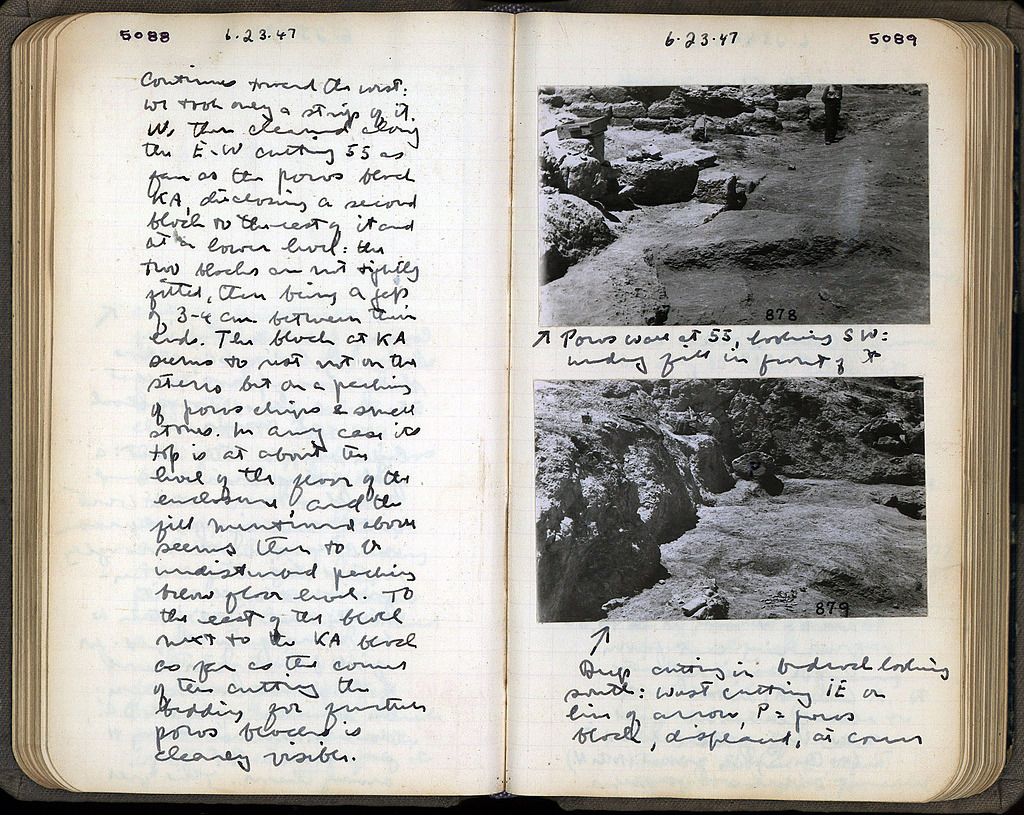 5088 6.23.47
Continues toward the west:
we took only a strip of it.
We then cleaned along
the E-W cutting 55 as
far as the poros block
KA, disclosing a second
block to the east of it and
at a lower level: the
two blocks are not tightly
fitted, there being a gap
of 3-4 cm between their
ends. The block at KA
seems to rest not on the
stereo but on a packing
of poros chips & small
stones. In any case its
top is at about the
level of the floor of the
enclosure, and the
fill mentioned above
seems then to be
undisturbed packing
below floor level. To
the east of the block
next to the KA block
as far as the corner
of the cutting the
bedding for further
poros blocks is
clearly visible.
6.23.47 5089
878
Poros wall at 55, looking SW:
undug fill in front of it
P
879
Deep cutting in bedrock looking
south: west cutting is on
line of arrow, P = poros
block, displaced, at corner